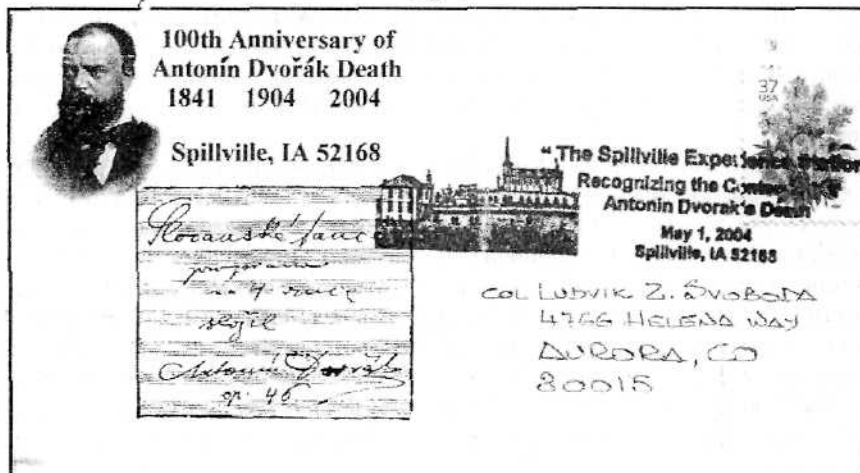 100th Anniversary of
Antonín Dvořák Death
1841 1904 2004
Spillville, IA 52168
37
USA
"The Spillville Experience Station
Recognizing the
Antonin Dvorak's Death
May 1, 2004
Spillville, IA 52168
Slovanské tance
na 4 ruce
složil
Antonín Dvořák
op. 46
COL LUDVIK Z. SVOBODA
4766 HELENA WAY
AURORA, CO
80015